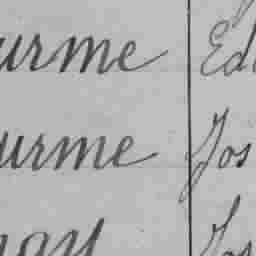 urme Ed
urme Jos
nay Jos